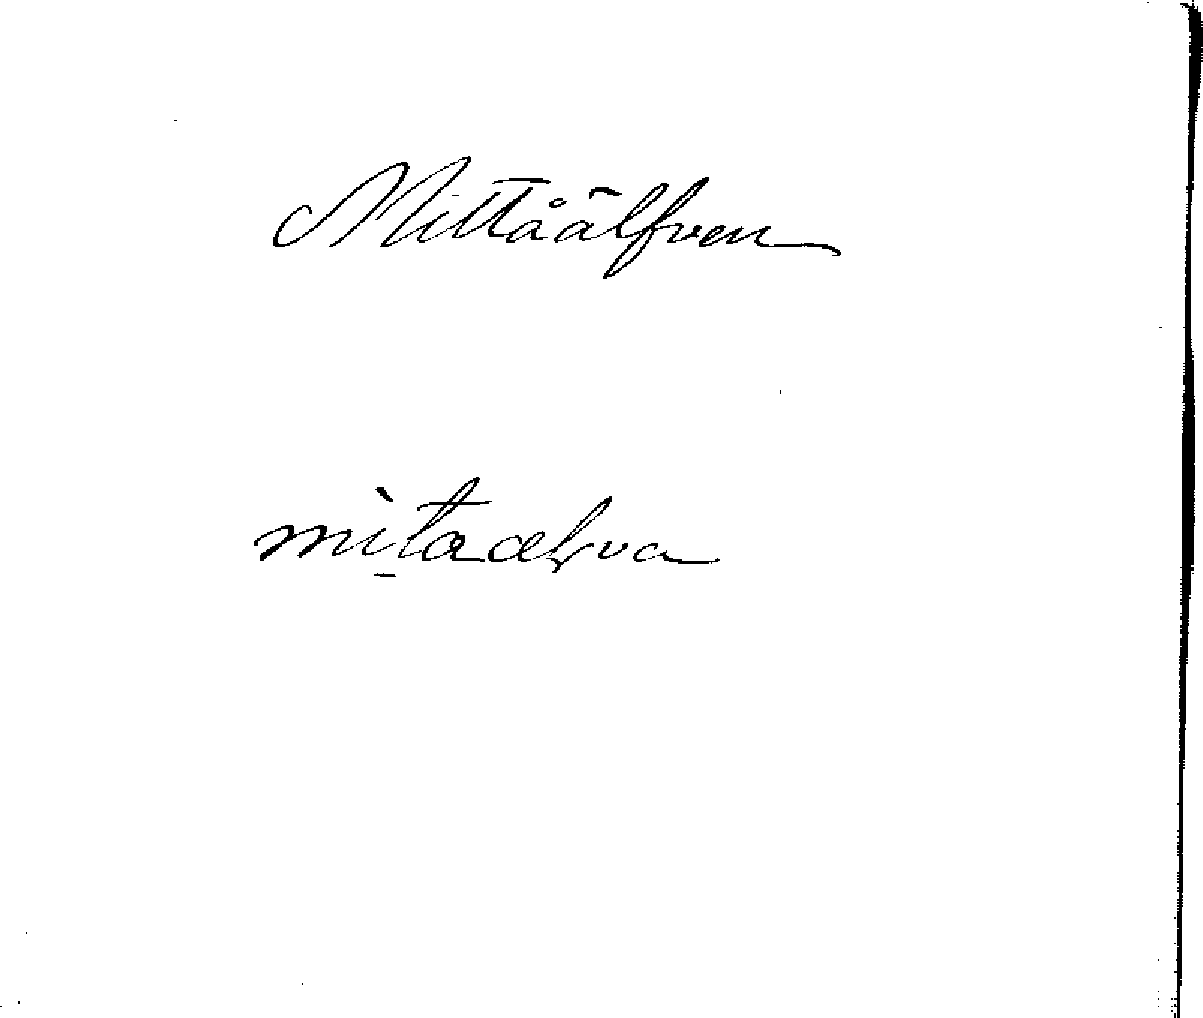 Mittåälfven
mìtaælvа